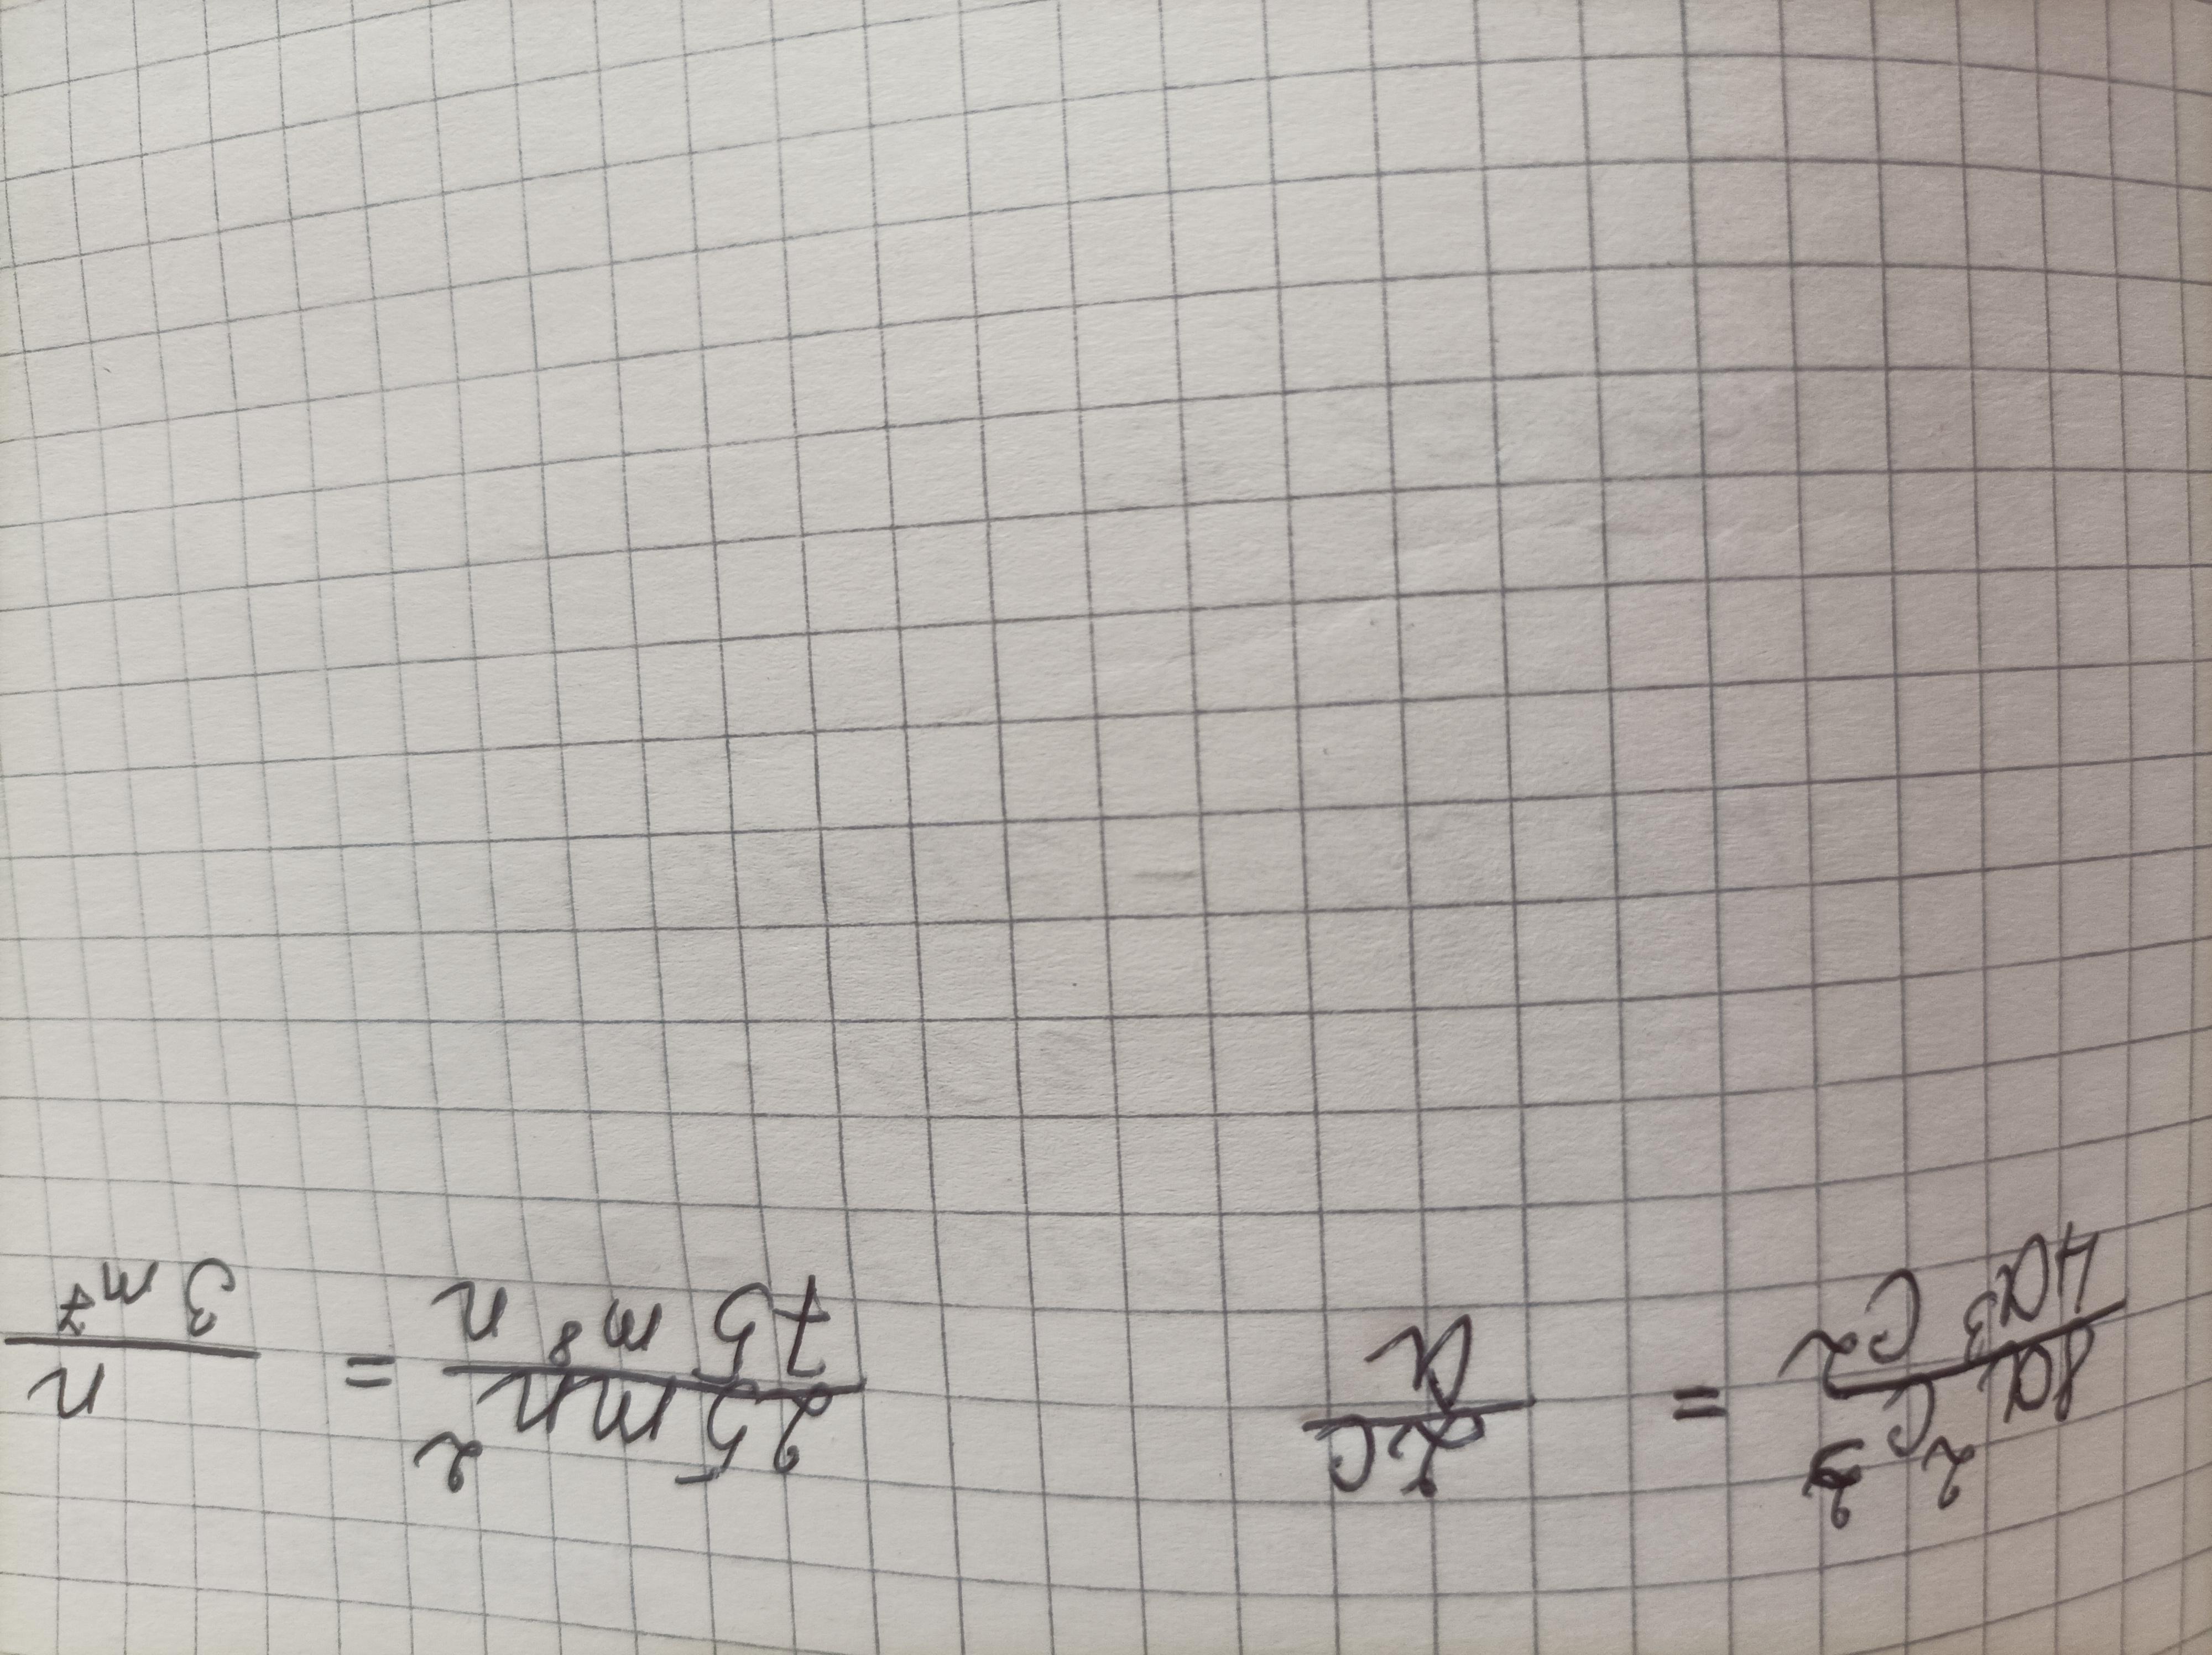 8a²c³/4a³c² = 2c/a
25mn²/75m⁸n = n/3m⁷